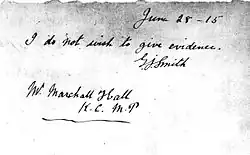 June 28 - 15
I do not wish to give evidence.
G J Smith
Mr Marchall Hall
K. C. M. P